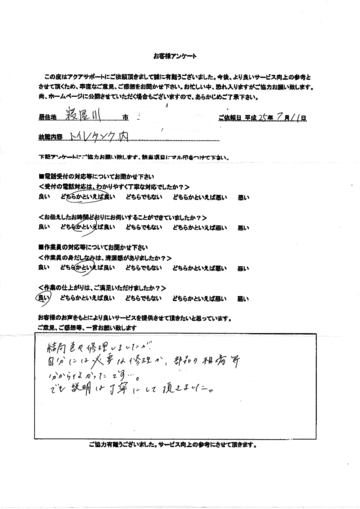 お客様アンケート
この度はアクアサポートにご依頼頂きまして誠に有難うございました。今後、より良いサービス向上の参考と
させて頂くため、率直なご意見、ご感想をお聞かせ下さい。お忙しい中、恐れ入りますがご協力お願い致します。
尚、ホームページに公開させていただく場合もございますので、あらかじめご了承下さい。
居住地 寝屋川 市 ご依頼日 平成 25年 7月 11日
故障内容 トイレタンク内
下記アンケートにご協力お願い致します。該当項目にマル印をつけて下さい。
■電話受付の対応等についてお聞かせ下さい
<受付の電話対応は、わかりやすく丁寧な対応でしたか?>
良い どちらかといえば良い どちらでもない どちらかといえば悪い 悪い
<お伝えしたお時間どおりにお伺いすることができていましたか?>
良い どちらかといえば良い どちらでもない どちらかといえば悪い 悪い
■作業員の対応等についてお聞かせ下さい
<作業員の身だしなみは、清潔感がありましたか?>
良い どちらかといえば良い どちらでもない どちらかといえば悪い 悪い
<作業の仕上がりは、ご満足いただけましたか?>
良い どちらかといえば良い どちらでもない どちらかといえば悪い 悪い
お客様のお声をもとにより良いサービスを提供させて頂きたいと思っています。
ご意見、ご感想等、一言お願い致します
結局色々修理しましたが
自分には必要な修理か、料金の相場等
分からなかったです…。
でも説明は丁寧にして頂きました。
ご協力有難うございました。サービス向上の参考にさせて頂きます。